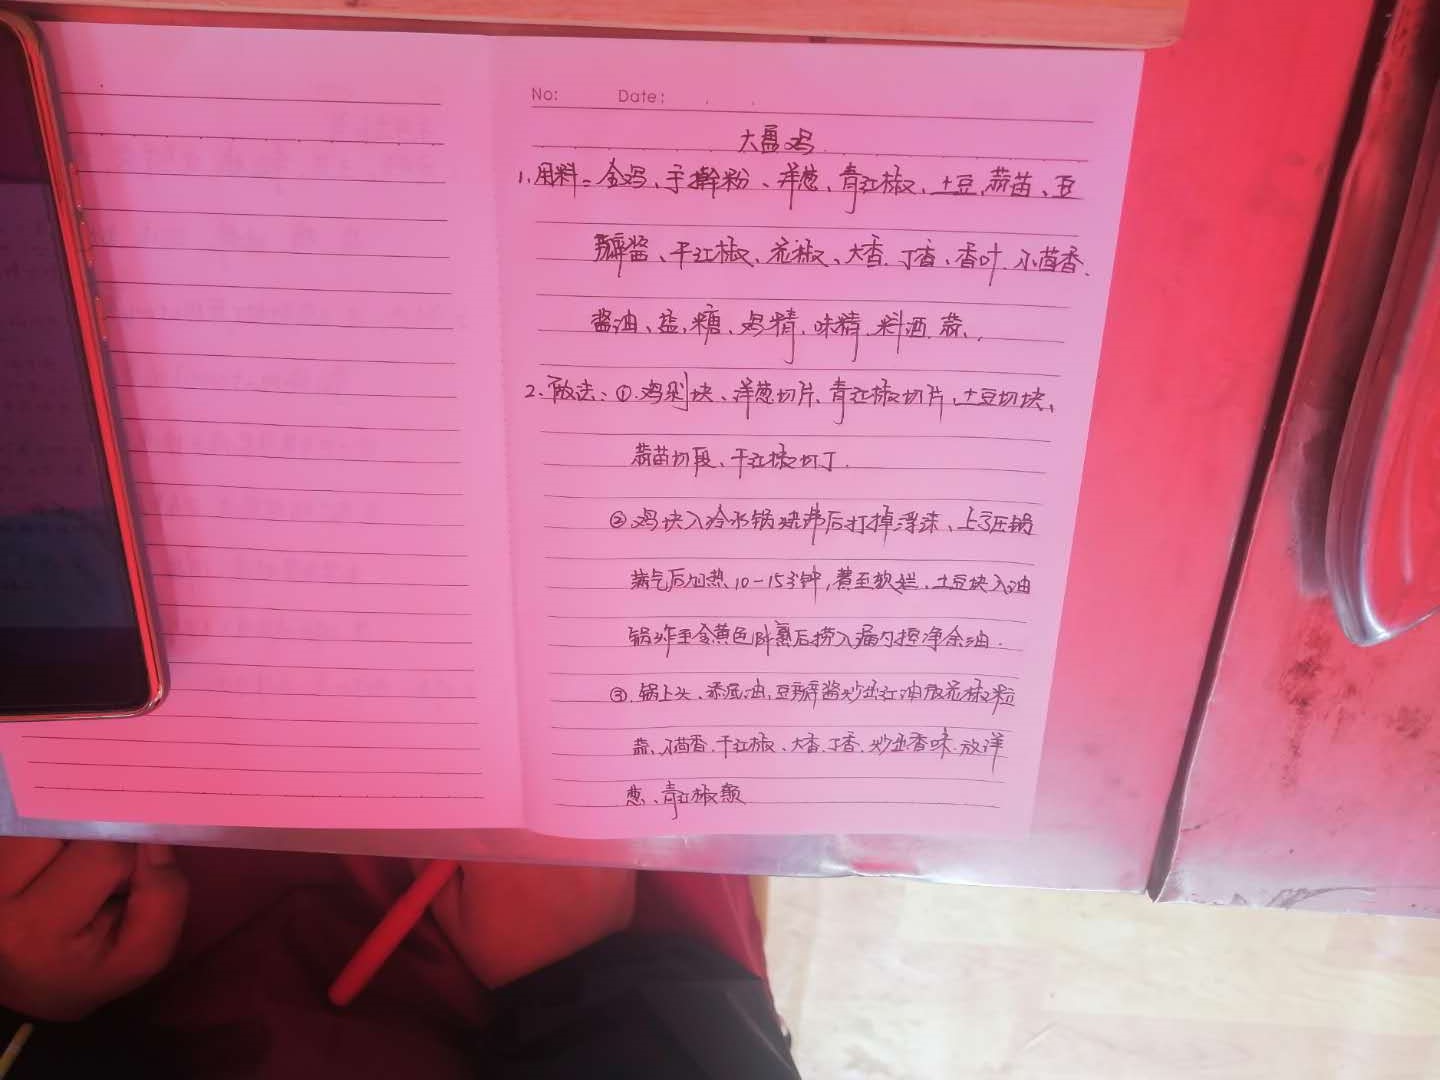 No: Date:
大盘鸡
1、用料:全鸡、手擀粉、洋葱、青红椒、土豆、蒜苗、豆
瓣酱、干红椒、花椒、大香、丁香、香叶、小茴香、
酱油、盐、糖、鸡精、味精、料酒、蒜、
2、做法:①、鸡剁块、洋葱切片、青红椒切片、土豆切块、
蒜苗切段、干红椒切丁.
②鸡块入冷水锅烧沸后打掉浮沫、上高压锅
满气后加热10-15分钟,煮至软烂、土豆块入油
锅炸至金黄色 熟后捞入漏勺控净余油.
③、锅上火、添底油、豆瓣酱炒出红油放花椒粒
蒜、小茴香、干红椒、大香、丁香、炒出香味、放洋
葱、青红椒